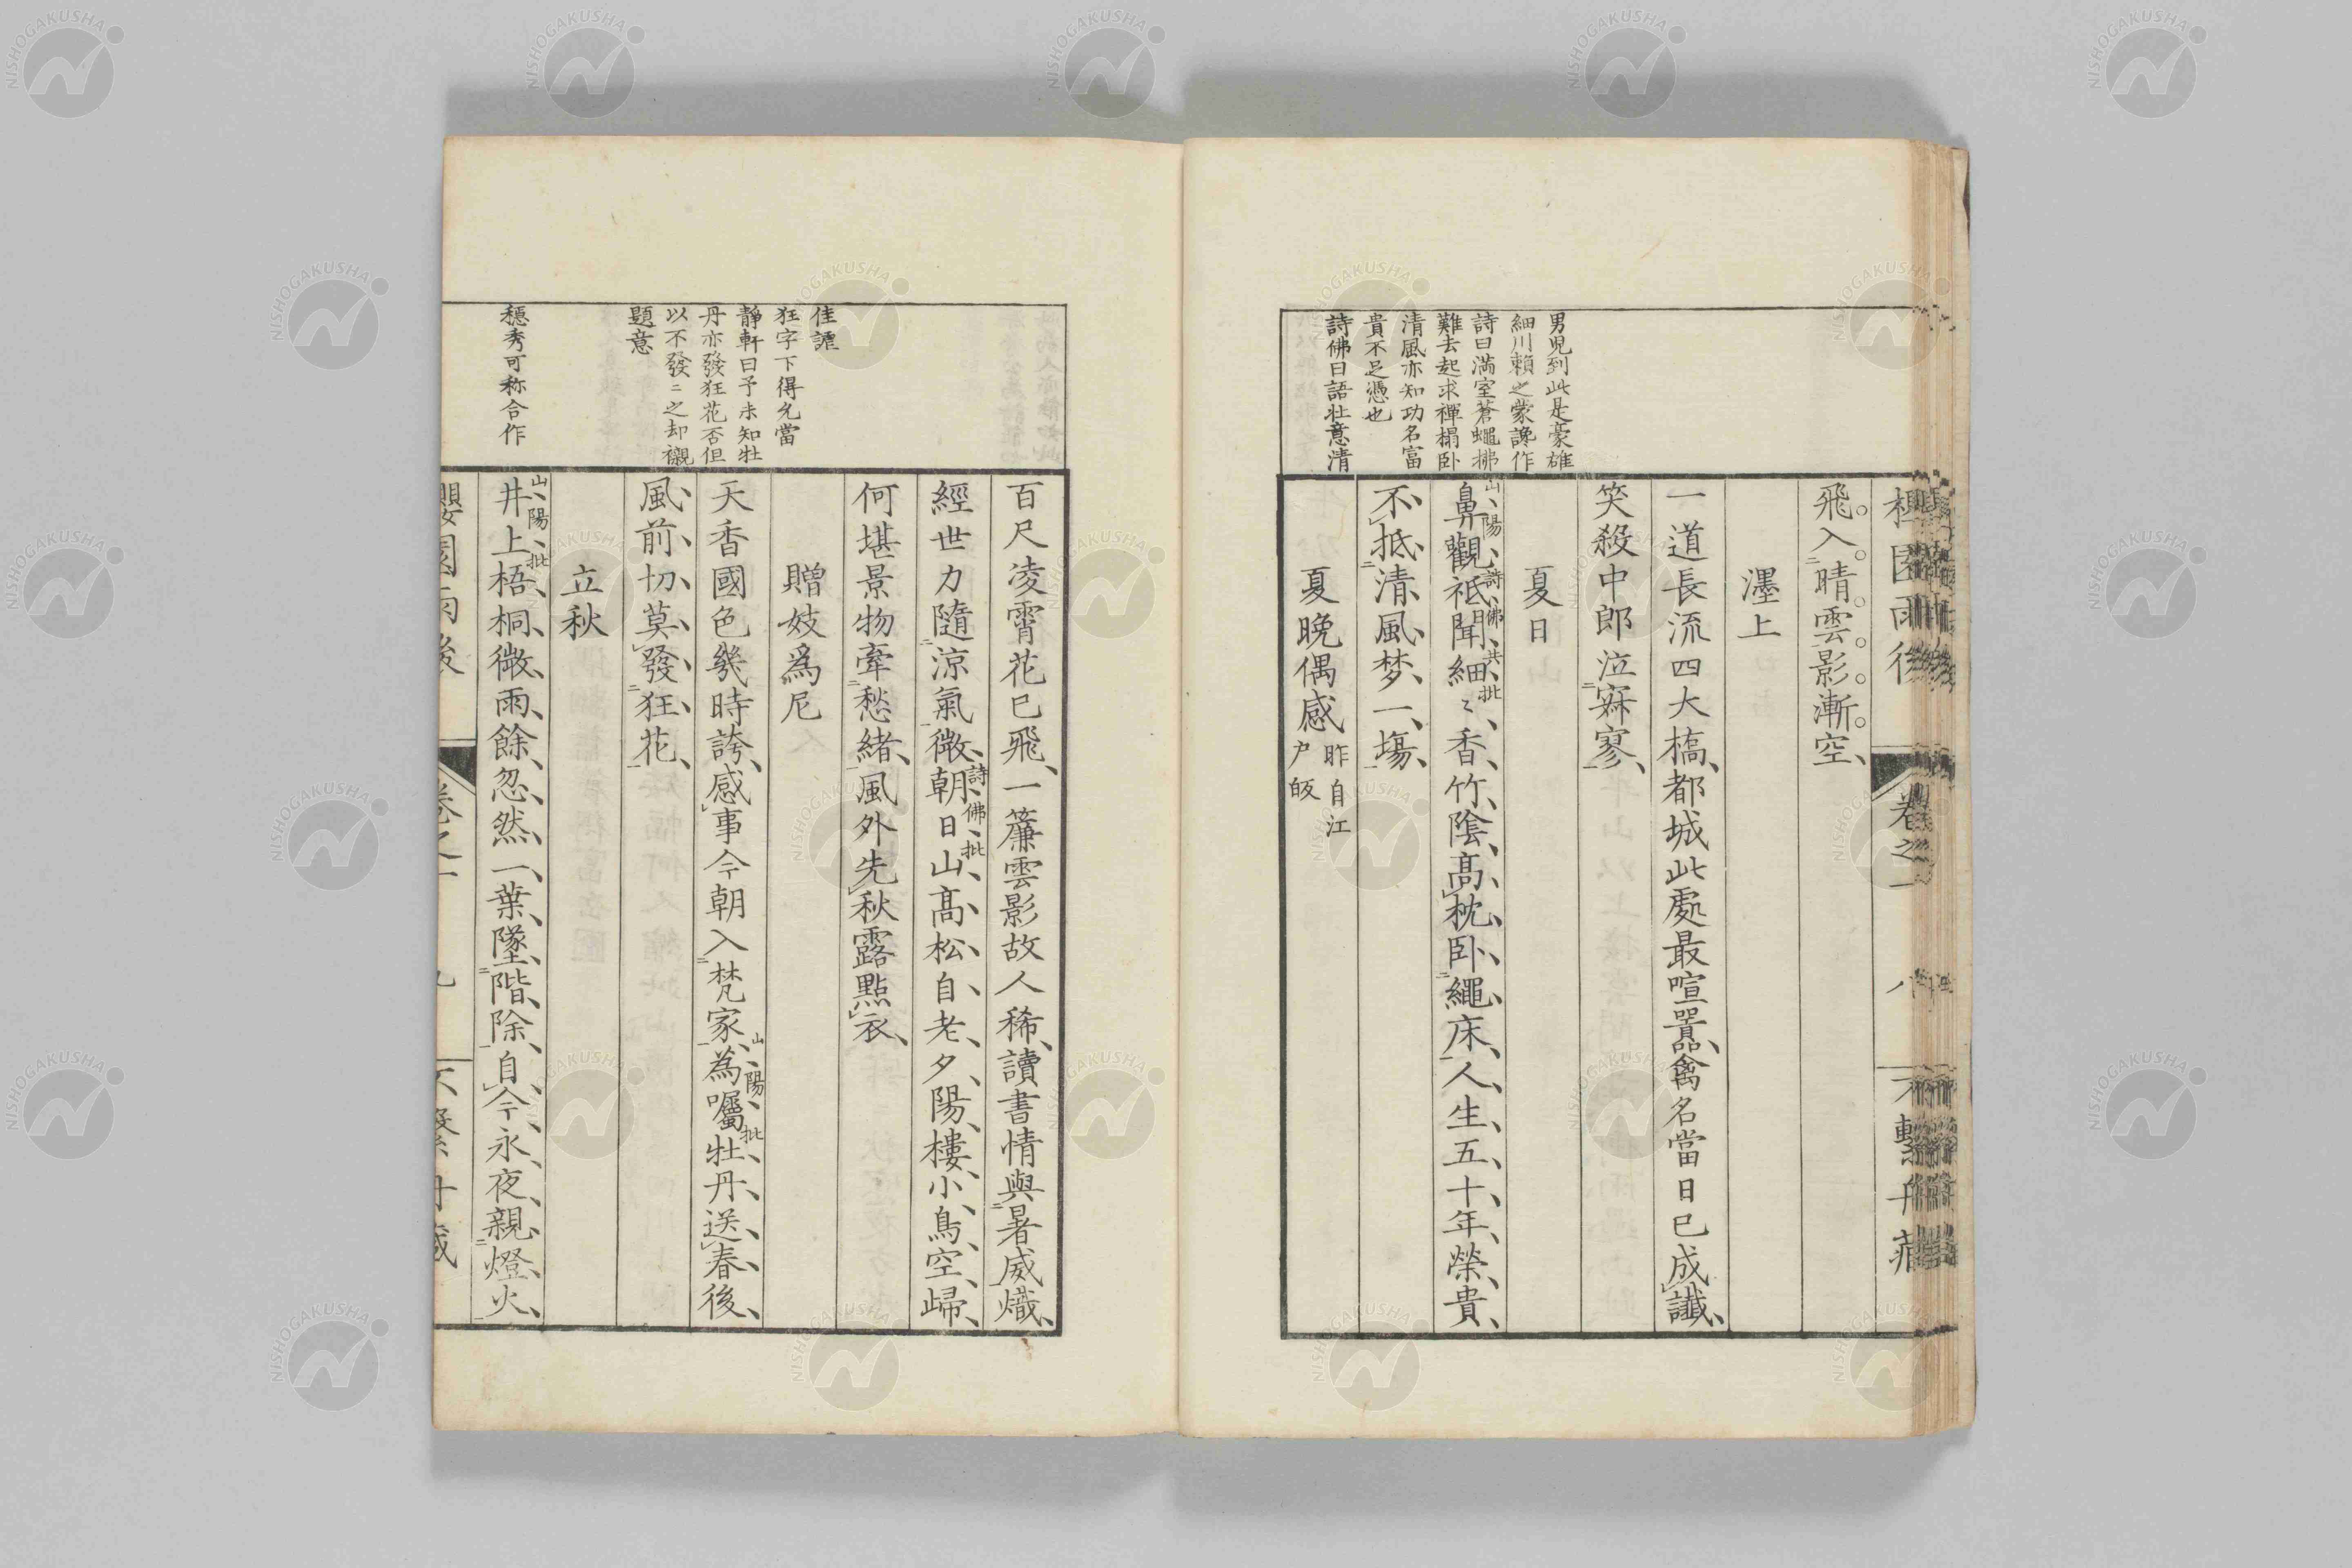 飛入晴雲影漸空
墨上
一道長流四大橋都城此處最喧囂禽名當日已成讖
笑殺中郎泣寂寥
夏日
鼻觀祗聞細〻香竹陰高枕臥繩床人生五十年榮貴
山陽詩佛共批
不抵清風夢一場
夏晚偶感 昨自江戸皈
男児到此是豪雄
細川頼之蒙讒作
詩曰満室蒼蠅拂
難去起求禪榻臥
清風亦知功名富
貴不足憑也
詩佛曰語壮意清
卷之一
八
百尺凌霄花已飛一簾雲影故人稀讀書情與暑威熾
經世力隨涼氣微朝日山高松自老夕陽樓小鳥空歸
詩佛批
何堪景物牽愁緒風外先秋露點衣
贈妓爲尼
天香國色幾時誇感事今朝入梵家為囑牡丹送春後
山陽批
風前切莫發狂花
立秋
井上梧桐微雨餘忽然一葉墜階除自今永夜親燈火
山陽批
佳謔
狂字下得允當
静軒曰予未知牡
丹亦發狂花否但
以不發〻之却襯
題意
穏秀可称合作
櫻園雨後
卷之一
九
不繋舟藏
NISHOGAKUSHA